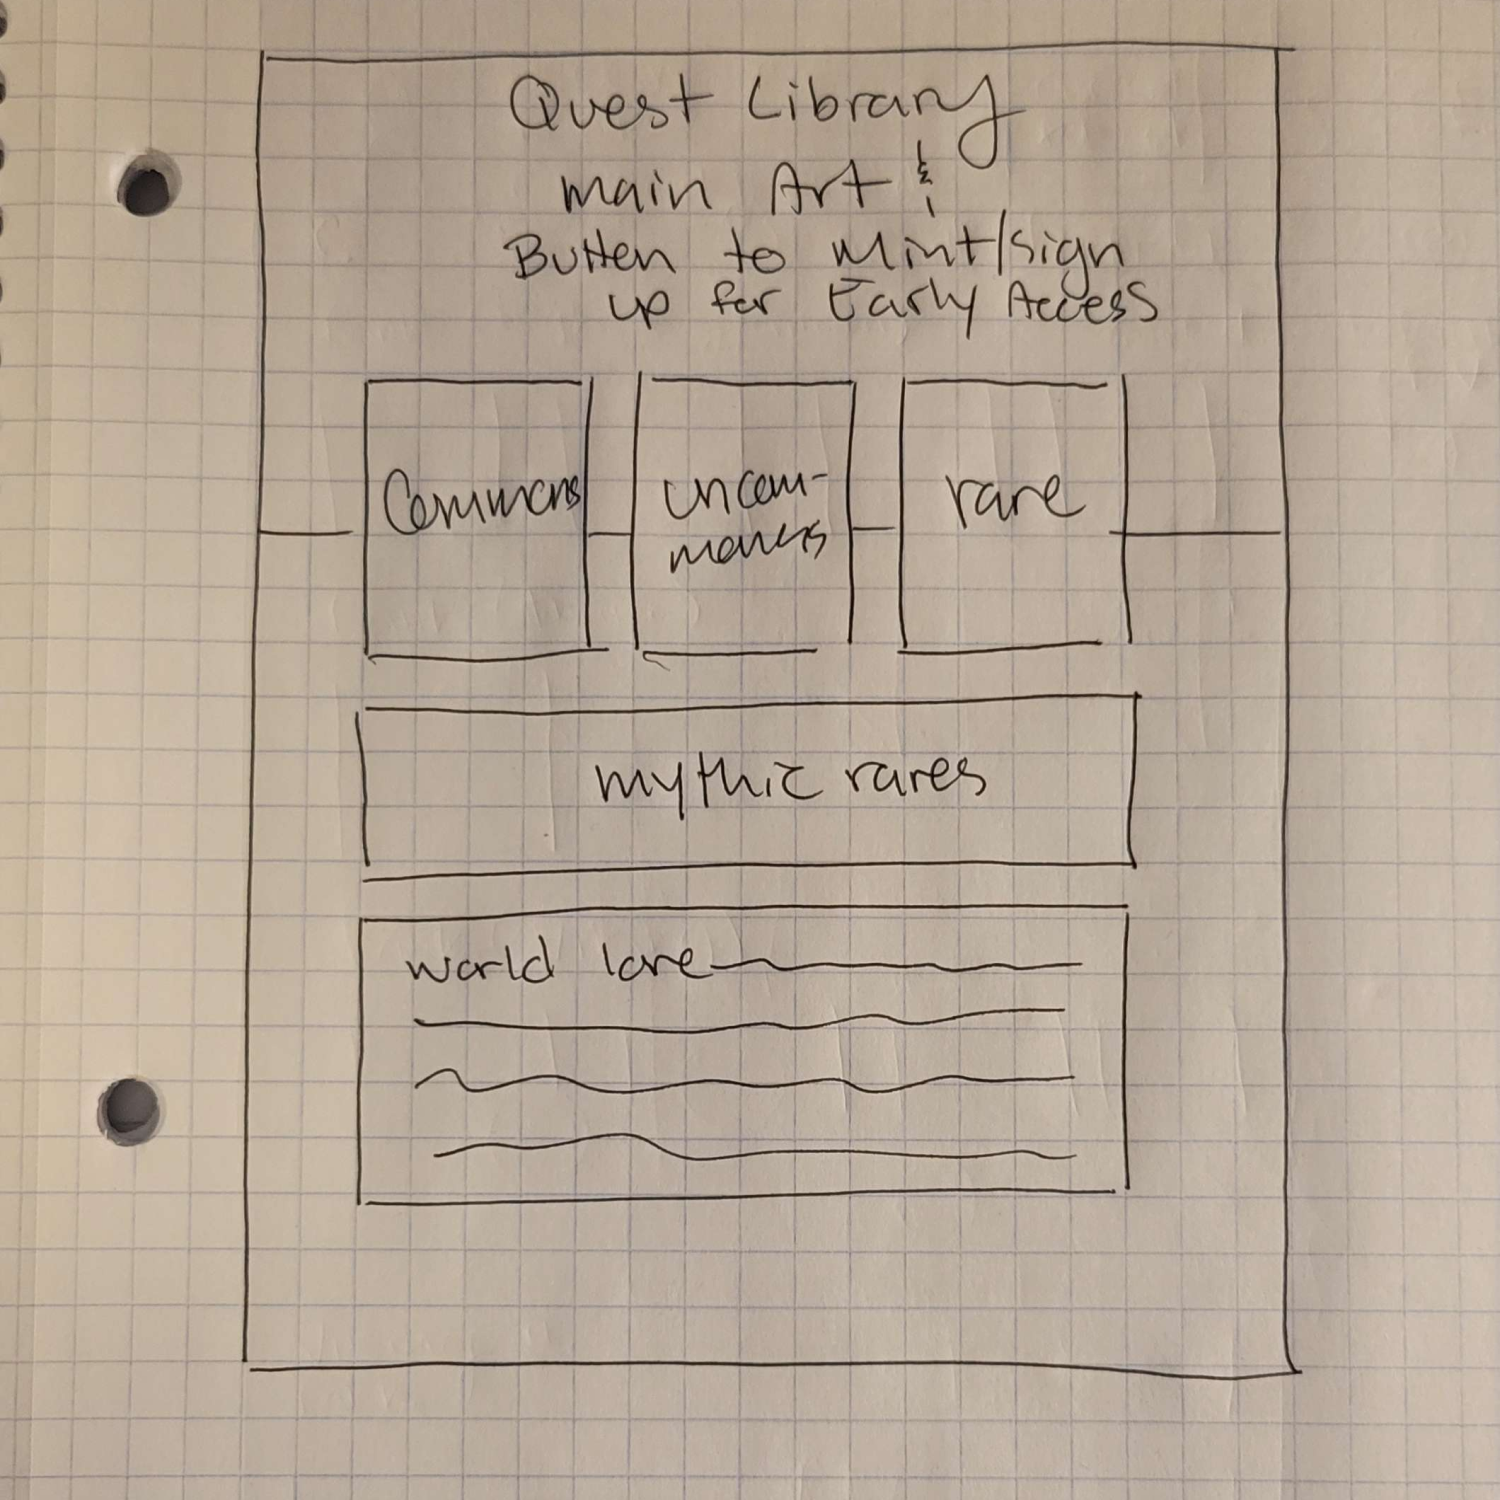 Quest Library
main Art &
Button to Mint/sign
up for Early Access
Commons
uncom-
mons
rare
mythic rares
world lore